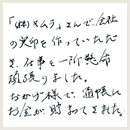 「(株)×ムラ」さんで、会社
の実印を作っていただ
き、仕事を一所懸命
頑張りました。
おかげ様で、通帳に
お金が貯まってきました。